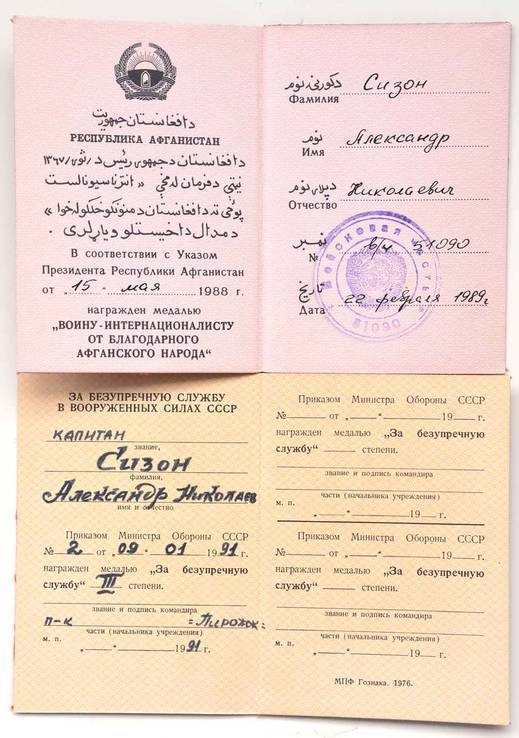 دافغانستان جمهوریت
РЕСПУБЛИКА АФГАНИСТАН
В соответствии с Указом
Президента Республики Афганистан
от „15“ мая 1988 г.
награжден медалью
„ВОИНУ-ИНТЕРНАЦИОНАЛИСТУ
ОТ БЛАГОДАРНОГО
АФГАНСКОГО НАРОДА“
دکورنی نوم Сизон
Фамилия
نوم Александр
Имя
دپلار نوم Николаевич
Отчество
نمبر
№ в/ч 51090
تاریخ
Дата 22 февраля 1989г
Войсковая часть
51090
ЗА БЕЗУПРЕЧНУЮ СЛУЖБУ
В ВООРУЖЕННЫХ СИЛАХ СССР
капитан
звание,
Сизон
фамилия,
Александр Николаев
имя и отчество
Приказом Министра Обороны СССР
№ 2 от „09“ 01 1991 г.
награжден медалью „За безупречную
службу“ III степени.
звание и подпись командира
п-к =Пирожок=
части (начальника учреждения)
м. п.
„ “ 1991 г.
Приказом Министра Обороны СССР
№ от „ “ 19 г.
награжден медалью „За безупречную
службу“ степени.
звание и подпись командира
части (начальника учреждения)
м. п. „ “ 19 г.
Приказом Министра Обороны СССР
№ от „ “ 19 г.
награжден медалью „За безупречную
службу“ степени.
звание и подпись командира
части (начальника учреждения)
м. п. „ “ 19 г.
МПФ Гознака. 1976.